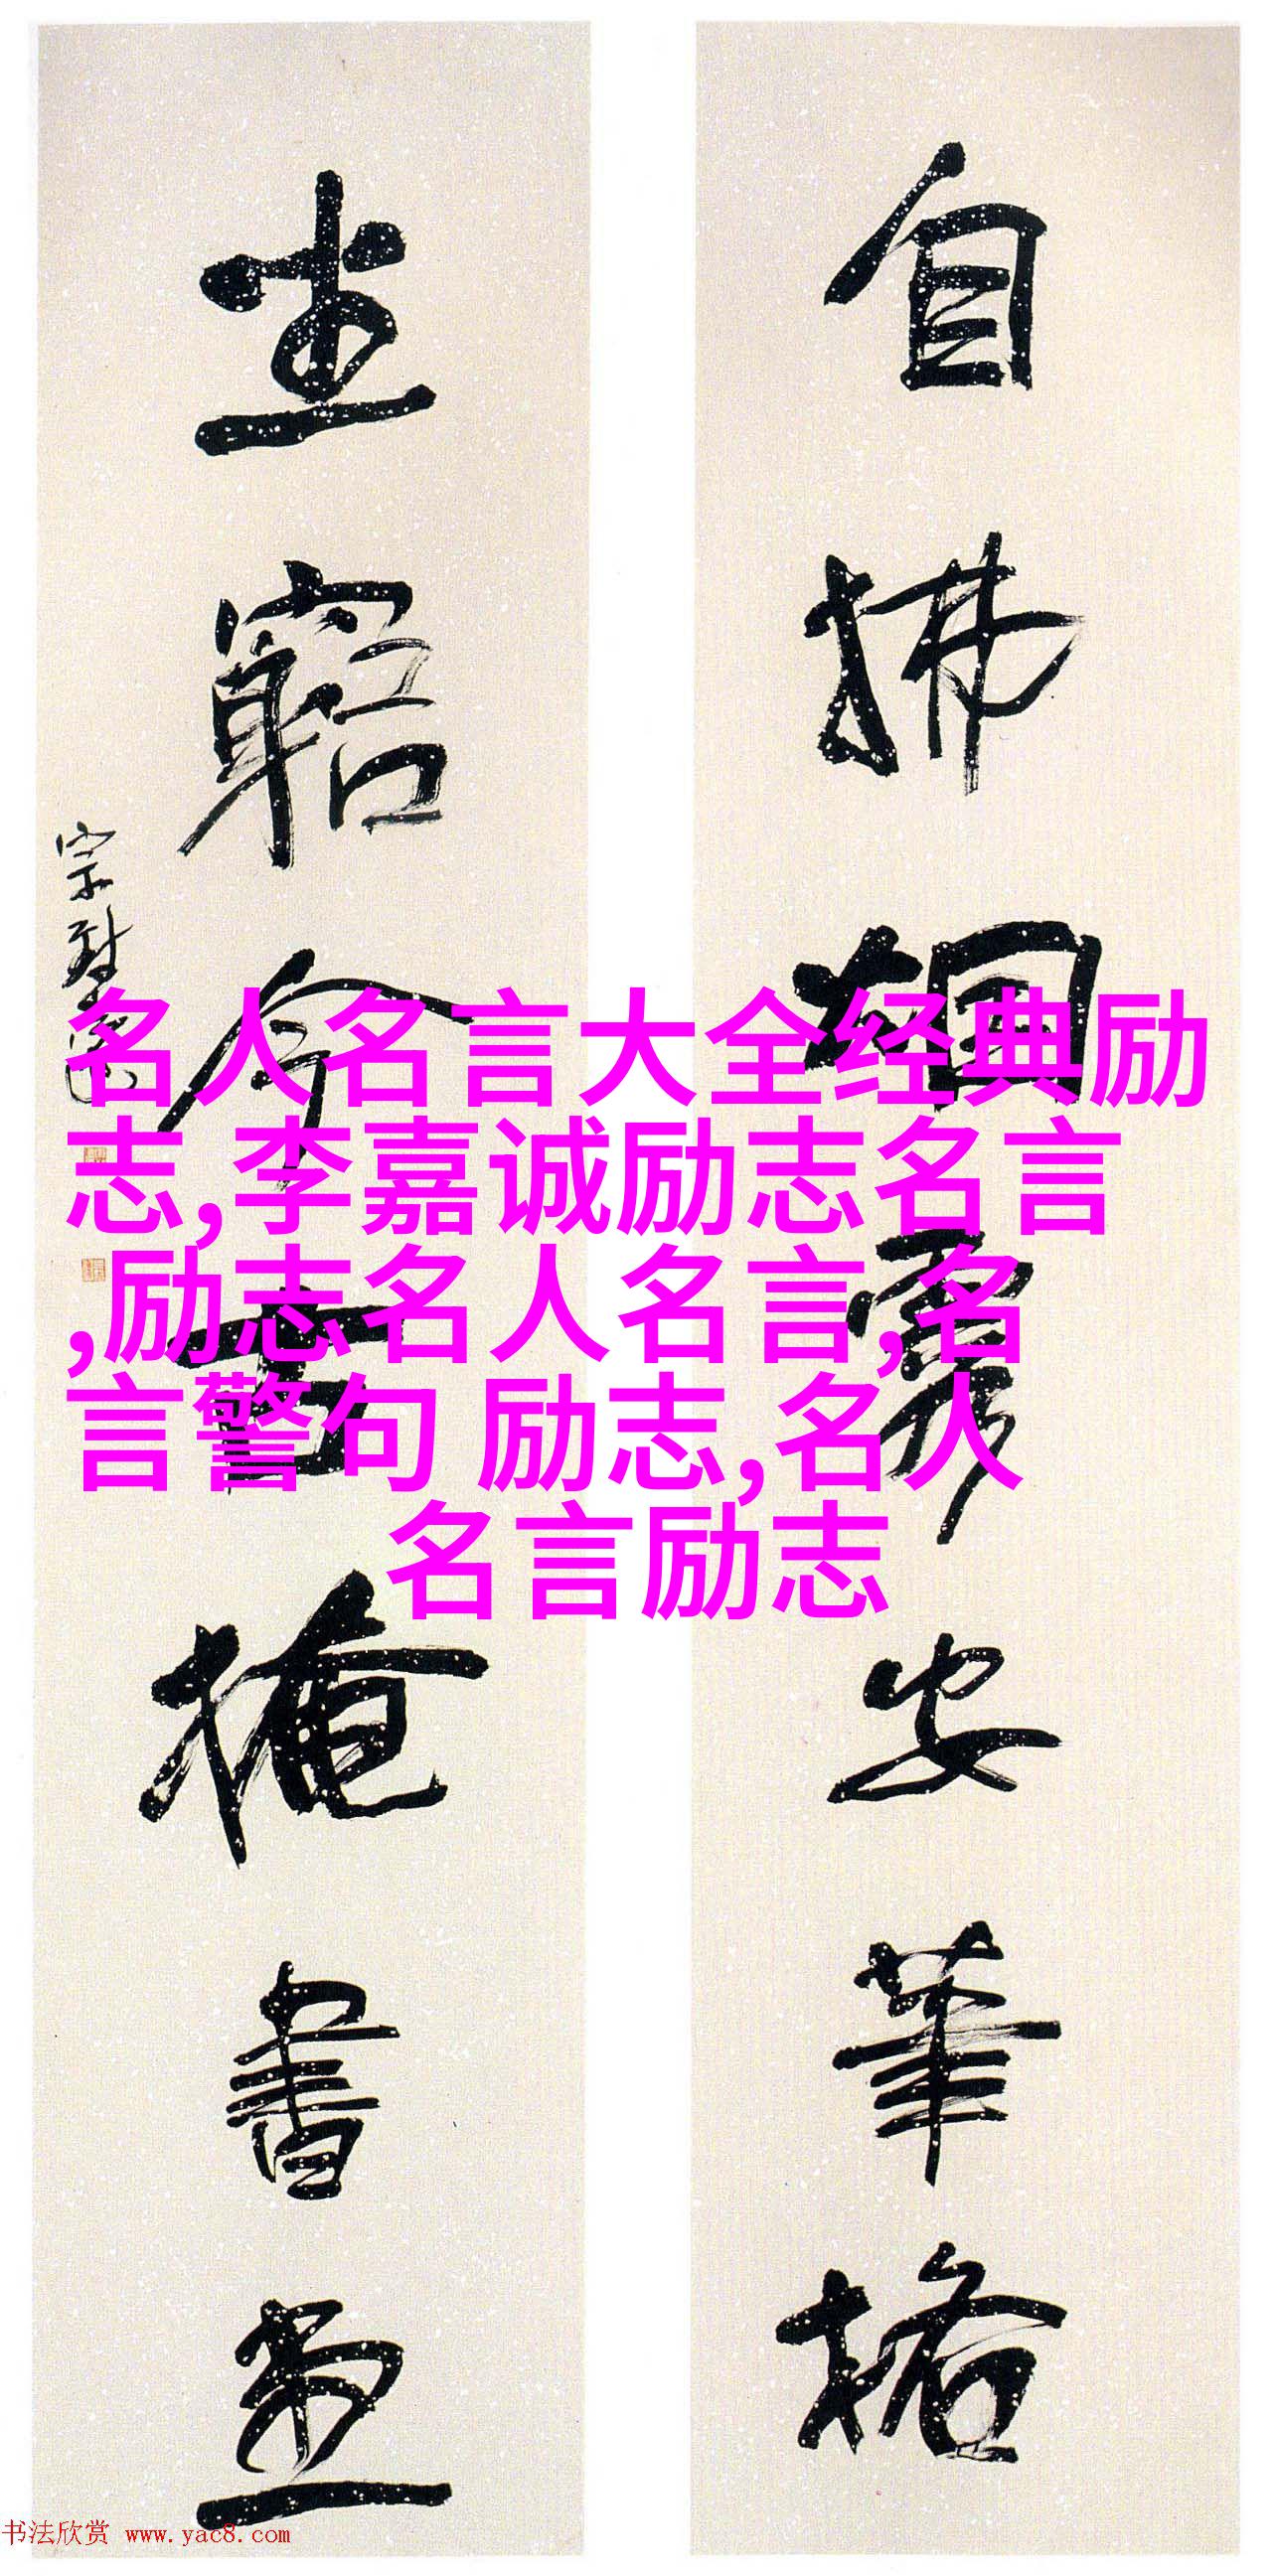 自拂烟霞安筆格
坐窮今古掩書堂
名人名言大全经典励
志,李嘉诚励志名言
,励志名 人名言,名
言警句 励志,名人
名言励志
书法欣赏 www.yac8.com